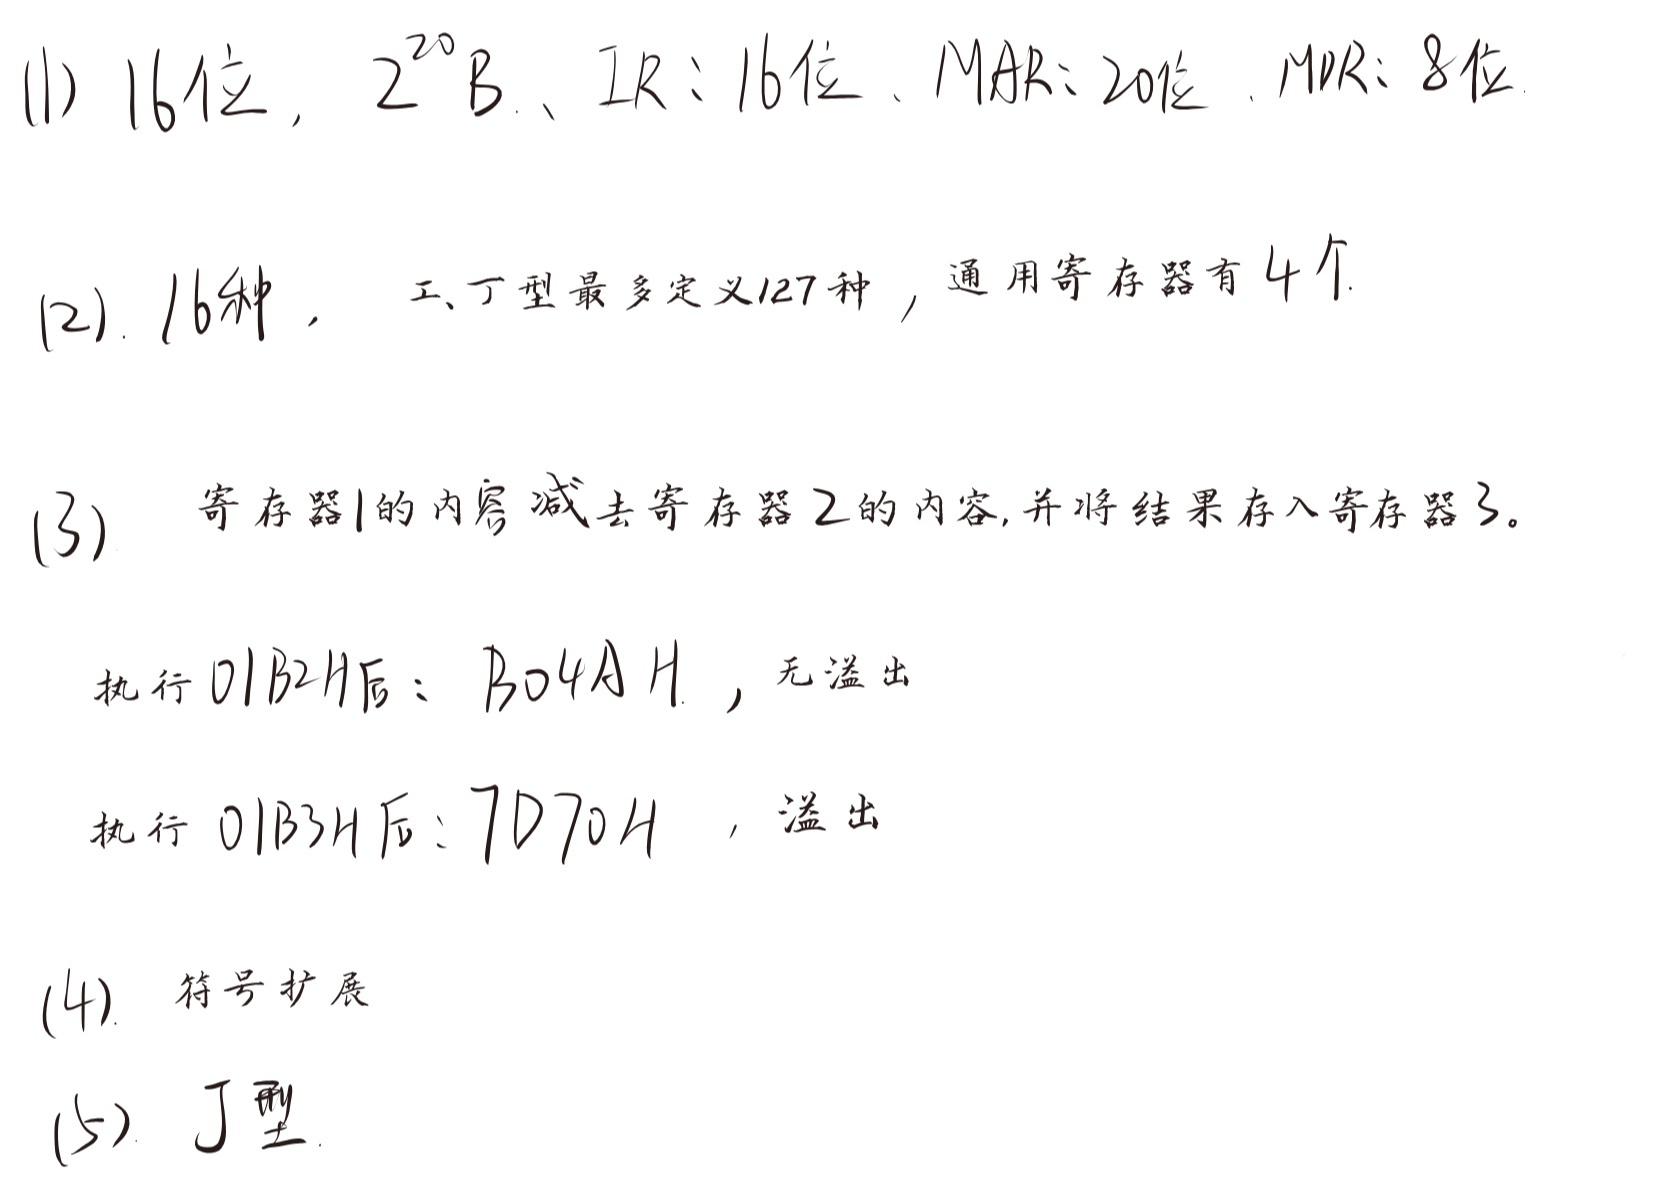 (1) 16位, 2^20 B.、IR:16位、MAR:20位、MDR:8位.
(2). 16种, I、J型最多定义127种,通用寄存器有4个.
(3) 寄存器1的内容减去寄存器2的内容,并将结果存入寄存器3。
执行01B2H后:B04AH,无溢出
执行01B3H后:7D70H,溢出
(4). 符号扩展
(5). J型.